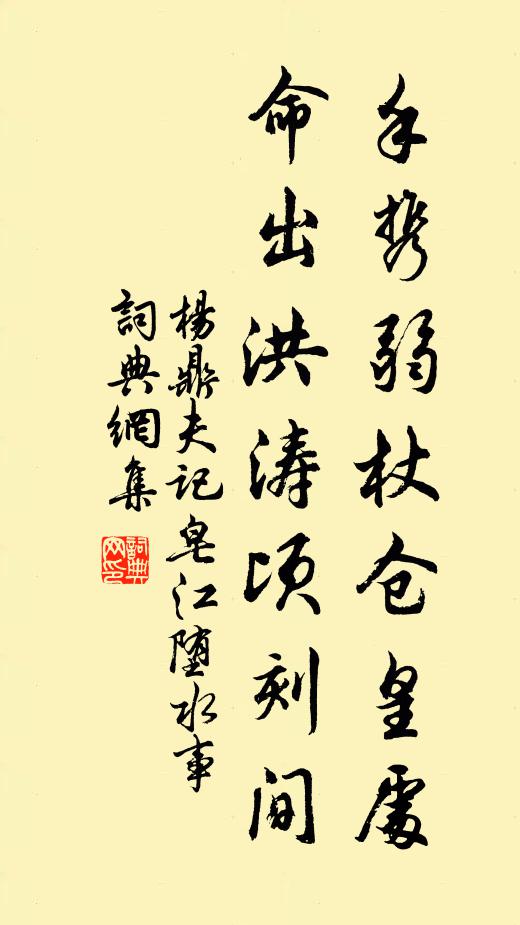 手携弱杖仓皇處
命出洪涛顷刻间
楊鼎夫记皂江堕水事
詞典網集
詞典网印